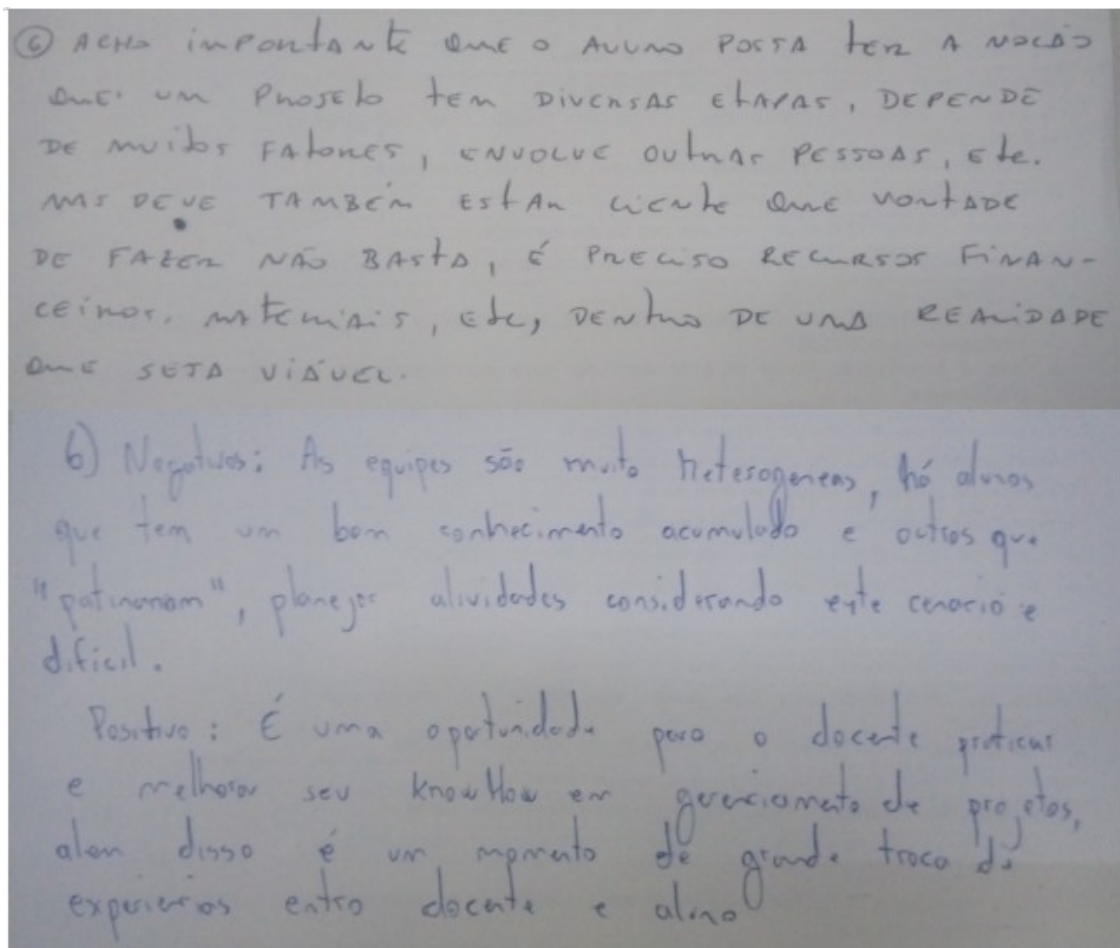 6 ACHO IMPORTANTE QUE O ALUNO POSSA TER A NOCÃO
QUE UM PROJETO TEM DIVERSAS ETAPAS, DEPENDE
DE MUITOS FATORES, ENVOLVE OUTRAS PESSOAS, ETC.
MAS DEVE TAMBÉM ESTAR CIENTE QUE VONTADE
DE FAZER NÃO BASTA, É PRECISO RECURSOS FINAN-
CEIROS, MATERIAIS, ETC, DENTRO DE UMA REALIDADE
QUE SEJA VIÁVEL.
6) Negativos: As equipes são muito heterogeneas, há alunos
que tem um bom conhecimento acumulado e outros que
"patinanam", planejar atividades considerando este cenario e
dificil.
Positivo: É uma oportunidade para o docente praticar
e melhorar seu knowHow em gerenciamento de projetos,
alem disso é um momento de grande troca de
experiencias entre docente e aluno